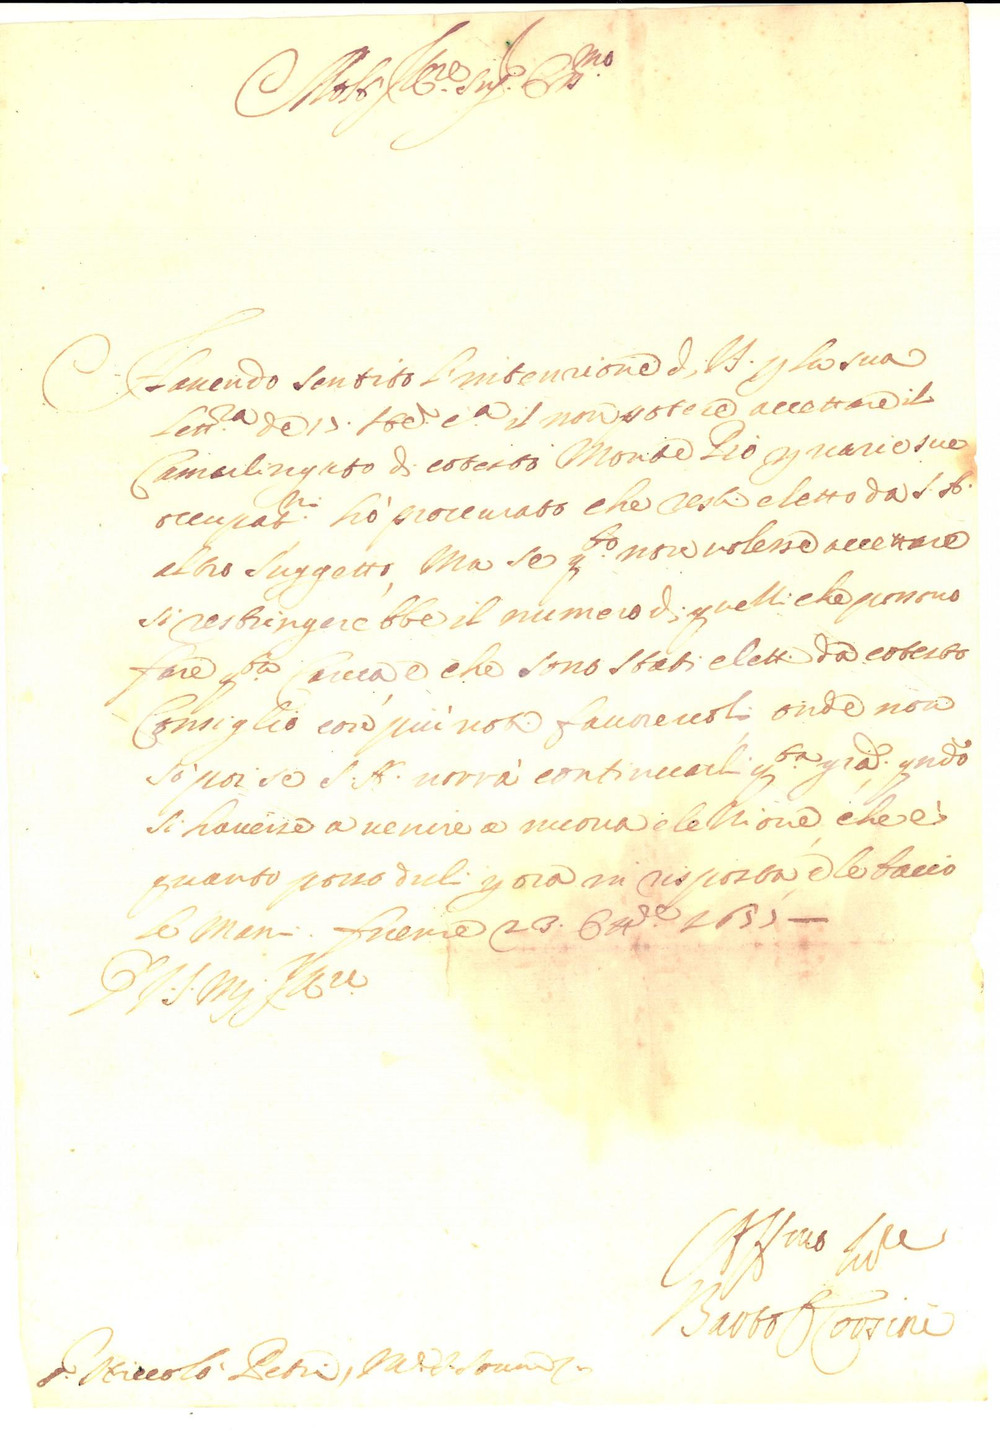 Molt' Ill.re Sig.r Oss.mo
Havendo sentito l'intenzione di V.S. p la sua
lett.ra de 15. stãe. c.a il non potere accettare il
Camarlingato di cotesto Monte Pio p varie sue
occupat.ni hò procurato che resti eletto da S.A.
altro suggetto, Ma se q.to non volesse accettare
si restringerebbe il numero di quelli che possono
fare q.ta Carica e che sono stati eletti da cotesto
Consiglio con più voti favorevoli onde non
sò poi se S.A. vorrà continuarli q.ta grã. qndo
si havesse a venire a nuova elettione, che è
quanto posso dirli p ora in risposta, e le bacio
le Mani. Firenze 23. 165
Di V.S. M. Ill.re
Aff.mo Ser.re
Corsini
S.r Niccolò